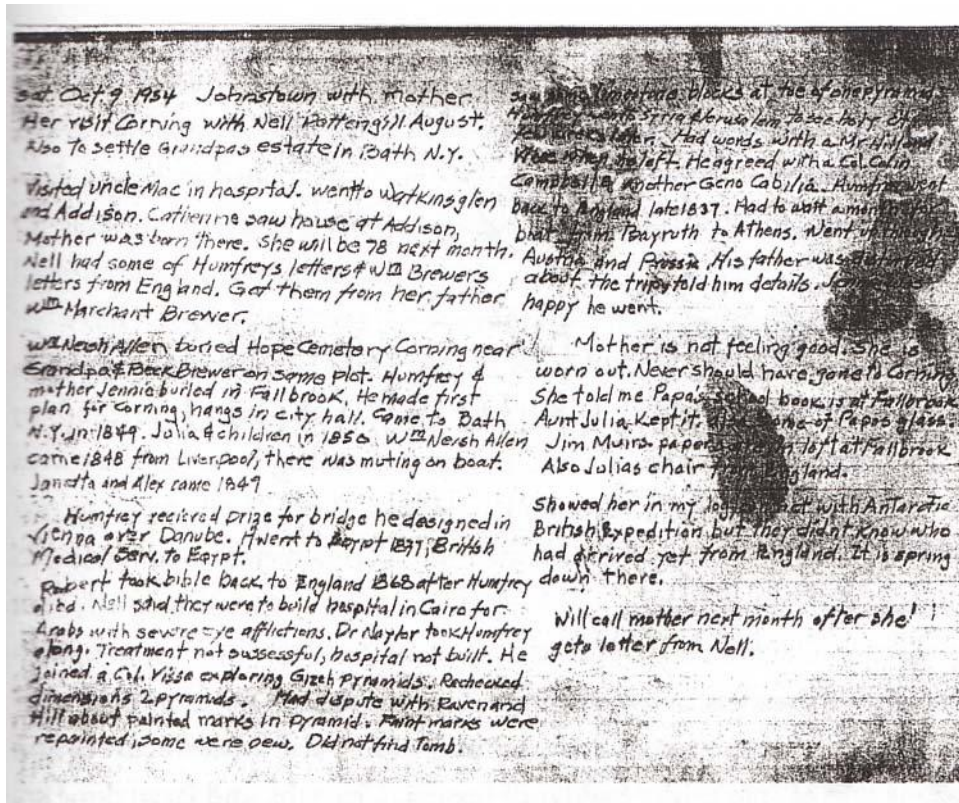 Sat. Oct 9 1954 Johnstown with mother.
Her visit Corning with Nell Pattengill August.
Also To settle Grandpas estate in Bath N.Y.
Visited uncle Mac in hospital. went to Watkinsglen
and Addison. Catherine saw house at Addison,
Mother was born there. She will be 78 next month.
Nell had some of Humfreys letters & Wm Brewers
letters from England. Got them from her father
Wm Marchant Brewer.
Wm Neish Allen buried Hope Cemetary Corning near
Grandpa & Beck Brewer on same plot. Humfrey &
mother Jennie buried in Fallbrook. He made first
plan for Corning, hangs in city hall. Came to Bath
N.Y. in 1849. Julia & children in 1850. Wm Neish Allen
came 1848 from Liverpool, there was muting on boat.
Janetta and Alex came 1849
Humfrey recieved prize for bridge he designed in
Vienna over Danube. H went to Egypt 1837, British
Medical Serv. to Egypt.
Robert took bible back to England 1868 after Humfrey
died. Nell said they were to build hospital in Cairo for
Arabs with severe eye afflictions. Dr Naylor took Humfrey
along. Treatment not sussessful, hospital not built. He
joined a Col. Visse exploring Gizeh pyramids. Rechecked
dimensions 2 pyramids. Had dispute with Raven and
Hill about painted marks in pyramid. Faint marks were
repainted, some were new. Did not find Tomb.
blocks at toe of one pyramid
Humfrey went Syria & Jerusalem to see holy
later. Had words with a Mr Hill and
when he left. He agreed with a Col. Colin
Campbell & another Geno Cabilia. Humfrey went
back to England late 1837. Had to wait a month for
boat from Bayruth to Athens. Went up through
Austria and Prussia. His father was
about the trip, told him details.
happy he went.
Mother is not feeling good. She is
worn out. Never should have gone to Corning
She told me Papa's school book is at Fallbrook
Aunt Julia Kept it. some of Papas glass.
Jim Muirs papers are in loft at Fallbrook
Also Julias chair from England.
Showed her in my log contact with Antarctic
British Expedition but they didnt know who
had arrived yet from England. It is spring
down there.
Will call mother next month after she
gets letter from Nell.